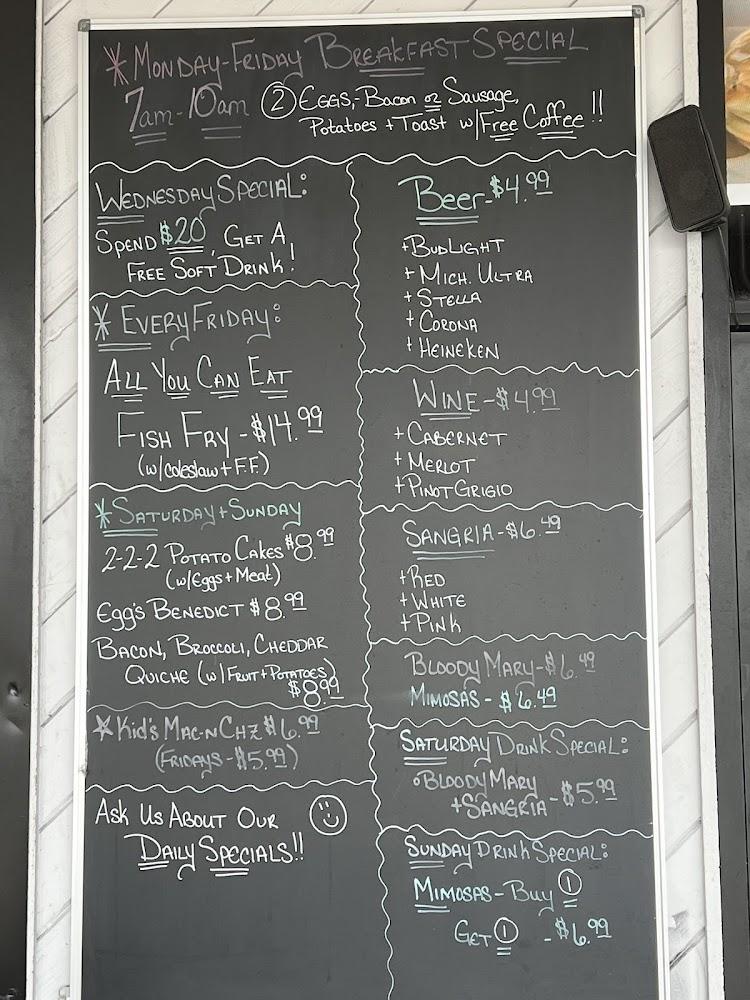 * Monday-Friday Breakfast Special
7am-10am ② Eggs,-Bacon or Sausage,
Potatoes + Toast w/Free Coffee!!
Wednesday Special:
Spend $20, Get A
Free Soft Drink!
* Every Friday:
All You Can Eat
Fish Fry - $14.99
(w/coleslaw + F.F.)
* Saturday + Sunday
2-2-2 Potato Cakes $8.99
(w/Eggs + Meat)
Egg's Benedict $8.99
Bacon, Broccoli, Cheddar
Quiche (w/ Fruit + Potatoes)
$8.99
* Kid's Mac-N-Chz $6.99
(Fridays - $5.99)
Ask Us About Our
Daily Specials!!
Beer - $4.99
+ Bud Light
+ Mich. Ultra
+ Stella
+ Corona
+ Heineken
Wine - $4.99
+ Cabernet
+ Merlot
+ Pinot Grigio
Sangria - $6.49
+ Red
+ White
+ Pink
Bloody Mary - $6.49
Mimosas - $6.49
Saturday Drink Special:
Bloody Mary
+ Sangria - $5.99
Sunday Drink Special:
Mimosas - Buy ①
Get ① - $6.99